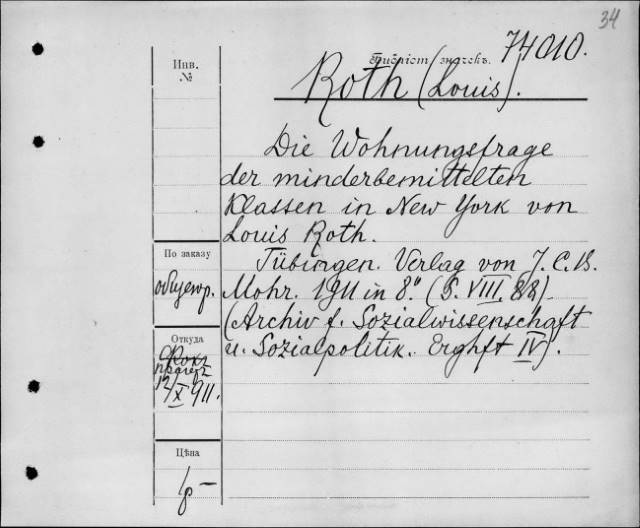 34
Инв.
№
74010.
Roth (Louis).
Die Wohnungsfrage
der minderbemittelten
Klassen in New York von
Louis Roth.
По заказу
Tübingen. Verlag von J. C. B.
Mohr. 1911 in 8° (S. VIII, 88)
(Archiv f. Sozialwissenschaft
Откуда
u. Sozialpolitik. Erghft IV).
12/X 911.
Цѣна